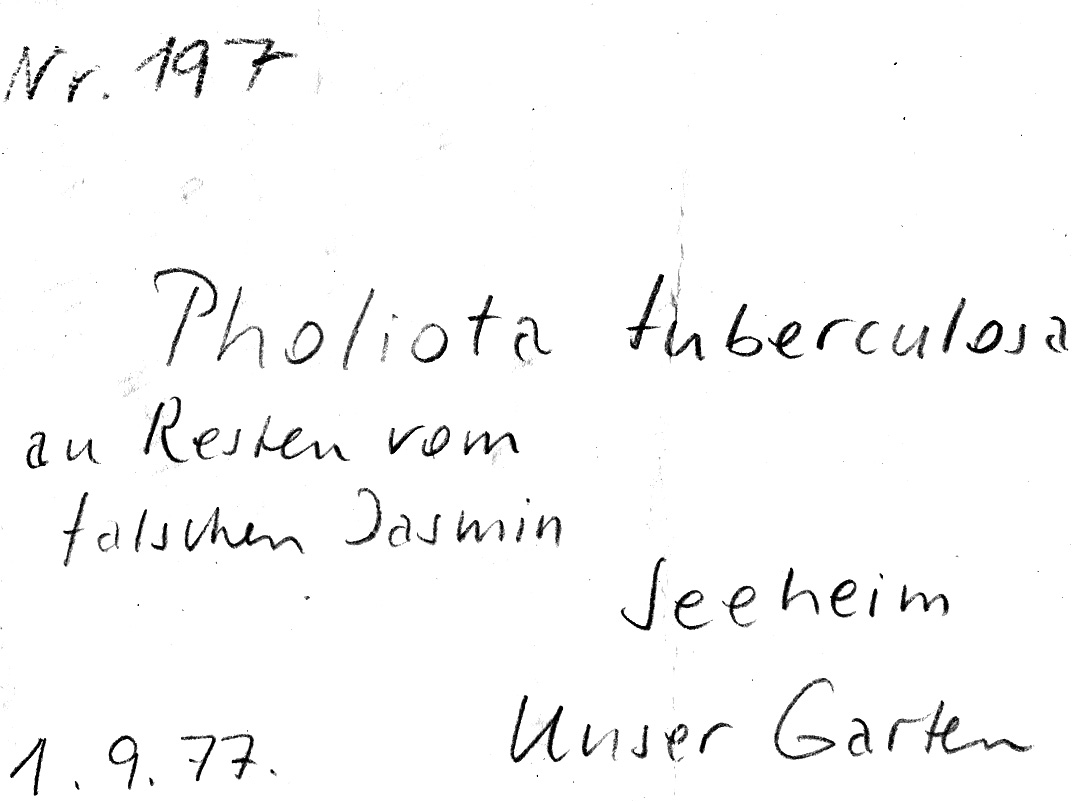 Nr. 197
Pholiota tuberculosa
an Resten vom
falschen Jasmin
Seeheim
Unser Garten
1. 9. 77.